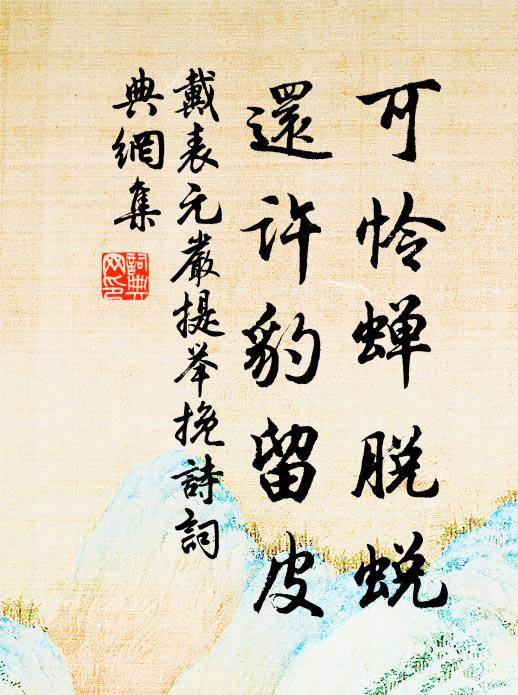 可怜蝉脱蜕
還許豹留皮
戴表元嚴提举挽詩詞
典網集
詞典网印